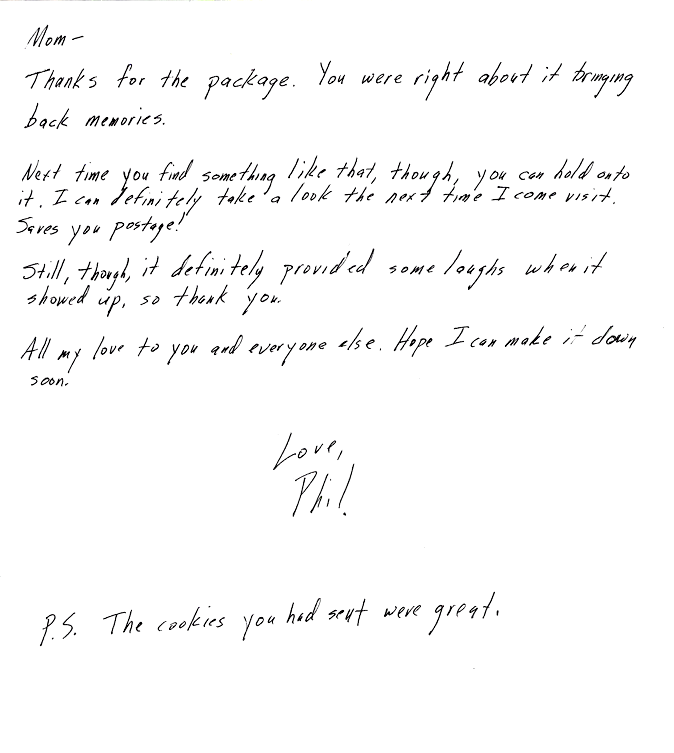 Mom-
Thanks for the package. You were right about it bringing
back memories.
Next time you find something like that, though, you can hold onto
it. I can definitely take a look the next time I come visit.
Saves you postage!
Still, though, it definitely provided some laughs when it
showed up, so thank you.
All my love to you and everyone else. Hope I can make it down
soon.
Love,
Phil
P.S. The cookies you had sent were great.